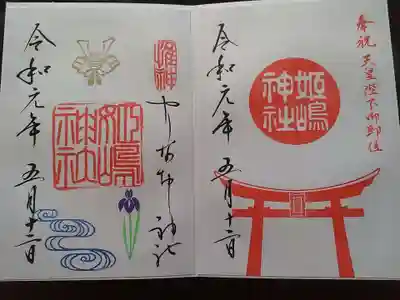 奉祝 天皇陛下御即位
姫嶋
神社
令和元年 五月十二日
やりなおし神社
姫嶋
神社
令和元年 五月十二日